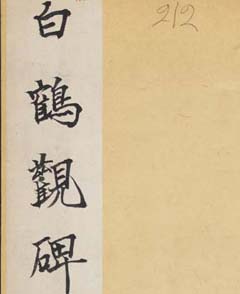 白鶴觀碑
212